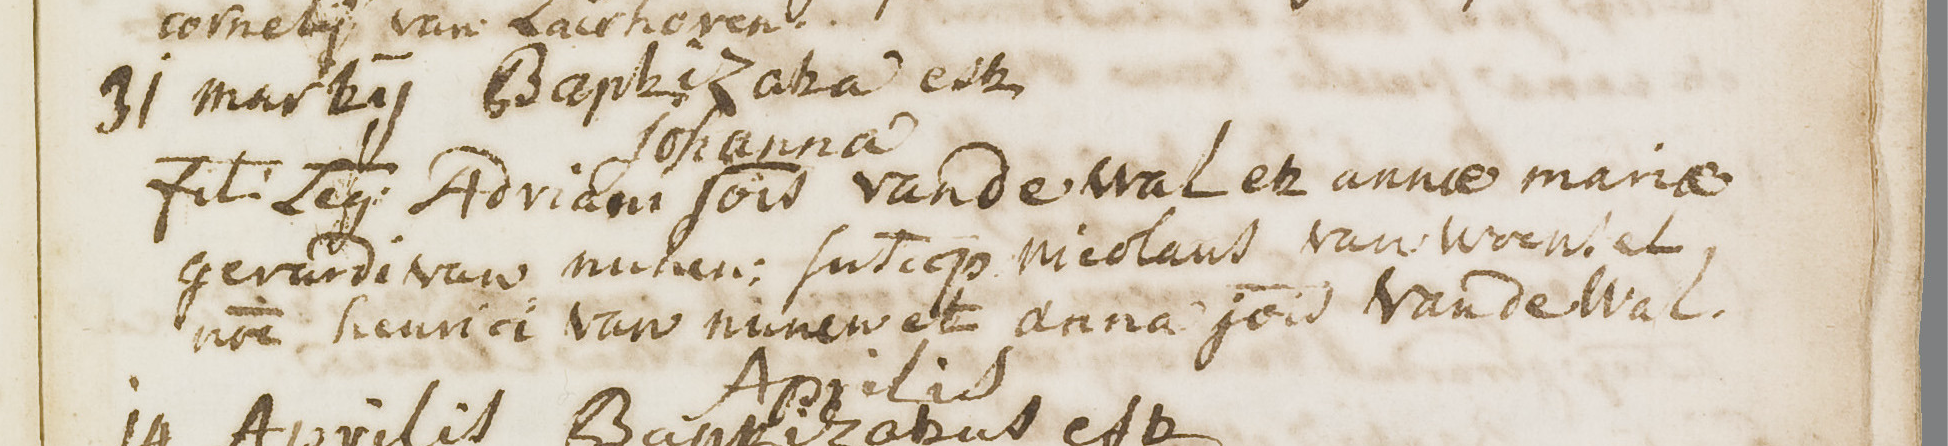 cornelij van Laerhoven.
31 martij Baptizata est
Johanna
fil: Leg: Adriani Jois vande Wal et annæ mariæ
gerardi van nunen; suscep nicolaus van Woensel
noē henrici van nunen et anna jois vande Wal.
Aprilis
14 Aprilis Baptizatus est